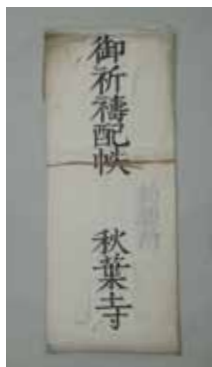 御祈禱配帙
秋葉寺